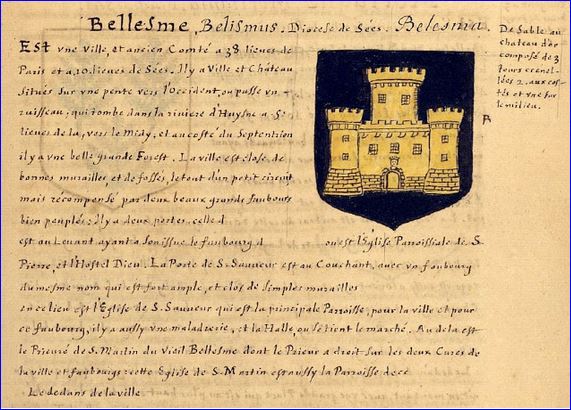 Bellesme, Belismus. Diocese de Sées. Belesma.
Est vne ville, et ancien Comté a 38 lieues de
Paris et a 10 lieues de Sées. Il y a Ville et Château
situés sur vne pente vers l'Occident, ou passe vn
ruisseau, qui tombe dans la riuiere d'Huysne a 5
lieues de la, vers le Midy, et au costé du Septention
il y a vne belle grande Forest. La ville est close de
bonnes murailles, et de fossés, le tout d'un petit circuit
mais récompensé par deux beaux grands faubours
bien peuplés: Il y a deux portes. celle d
est au Leuant ayant a son issue le faubourg d ou est l'Eglise Parroissiale de S.
Pierre, et l'Hostel Dieu. La Porte de S. Sauueur est au Couchant, auec vn faubourg
du mesme nom qui est fort ample, et clos de simples murailles
en ce lieu est l'Eglise de S. Sauueur qui est la principale Parroisse, pour la ville et pour
ce faubourg, il y a aussy vne maladrerie, et la Halle, ou se tient le marché. Au dela est
le Prieuré de S. Martin du Vieil Bellesme dont le Prieur a droit sur les deux Cures de
la ville et faubourgs: cette Eglise de S. Martin est aussy la Parroisse de ce
Le dedans de la ville
De Sable au
chateau d'or
composé de 3
tours crenel-
lées 2. aux cos-
tés et vne sur
le milieu.
A